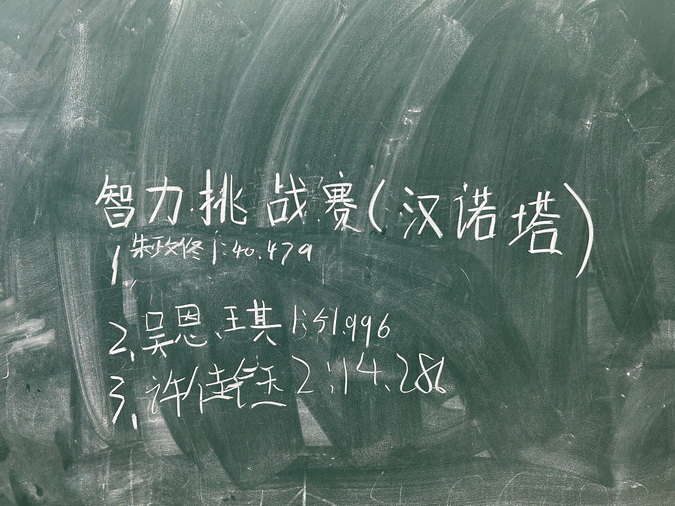 智力挑战赛(汉诺塔)
1. 朱政佟 1:40.479
2、吴恩琪 1:51.996
3、许佳钰 2:14.286